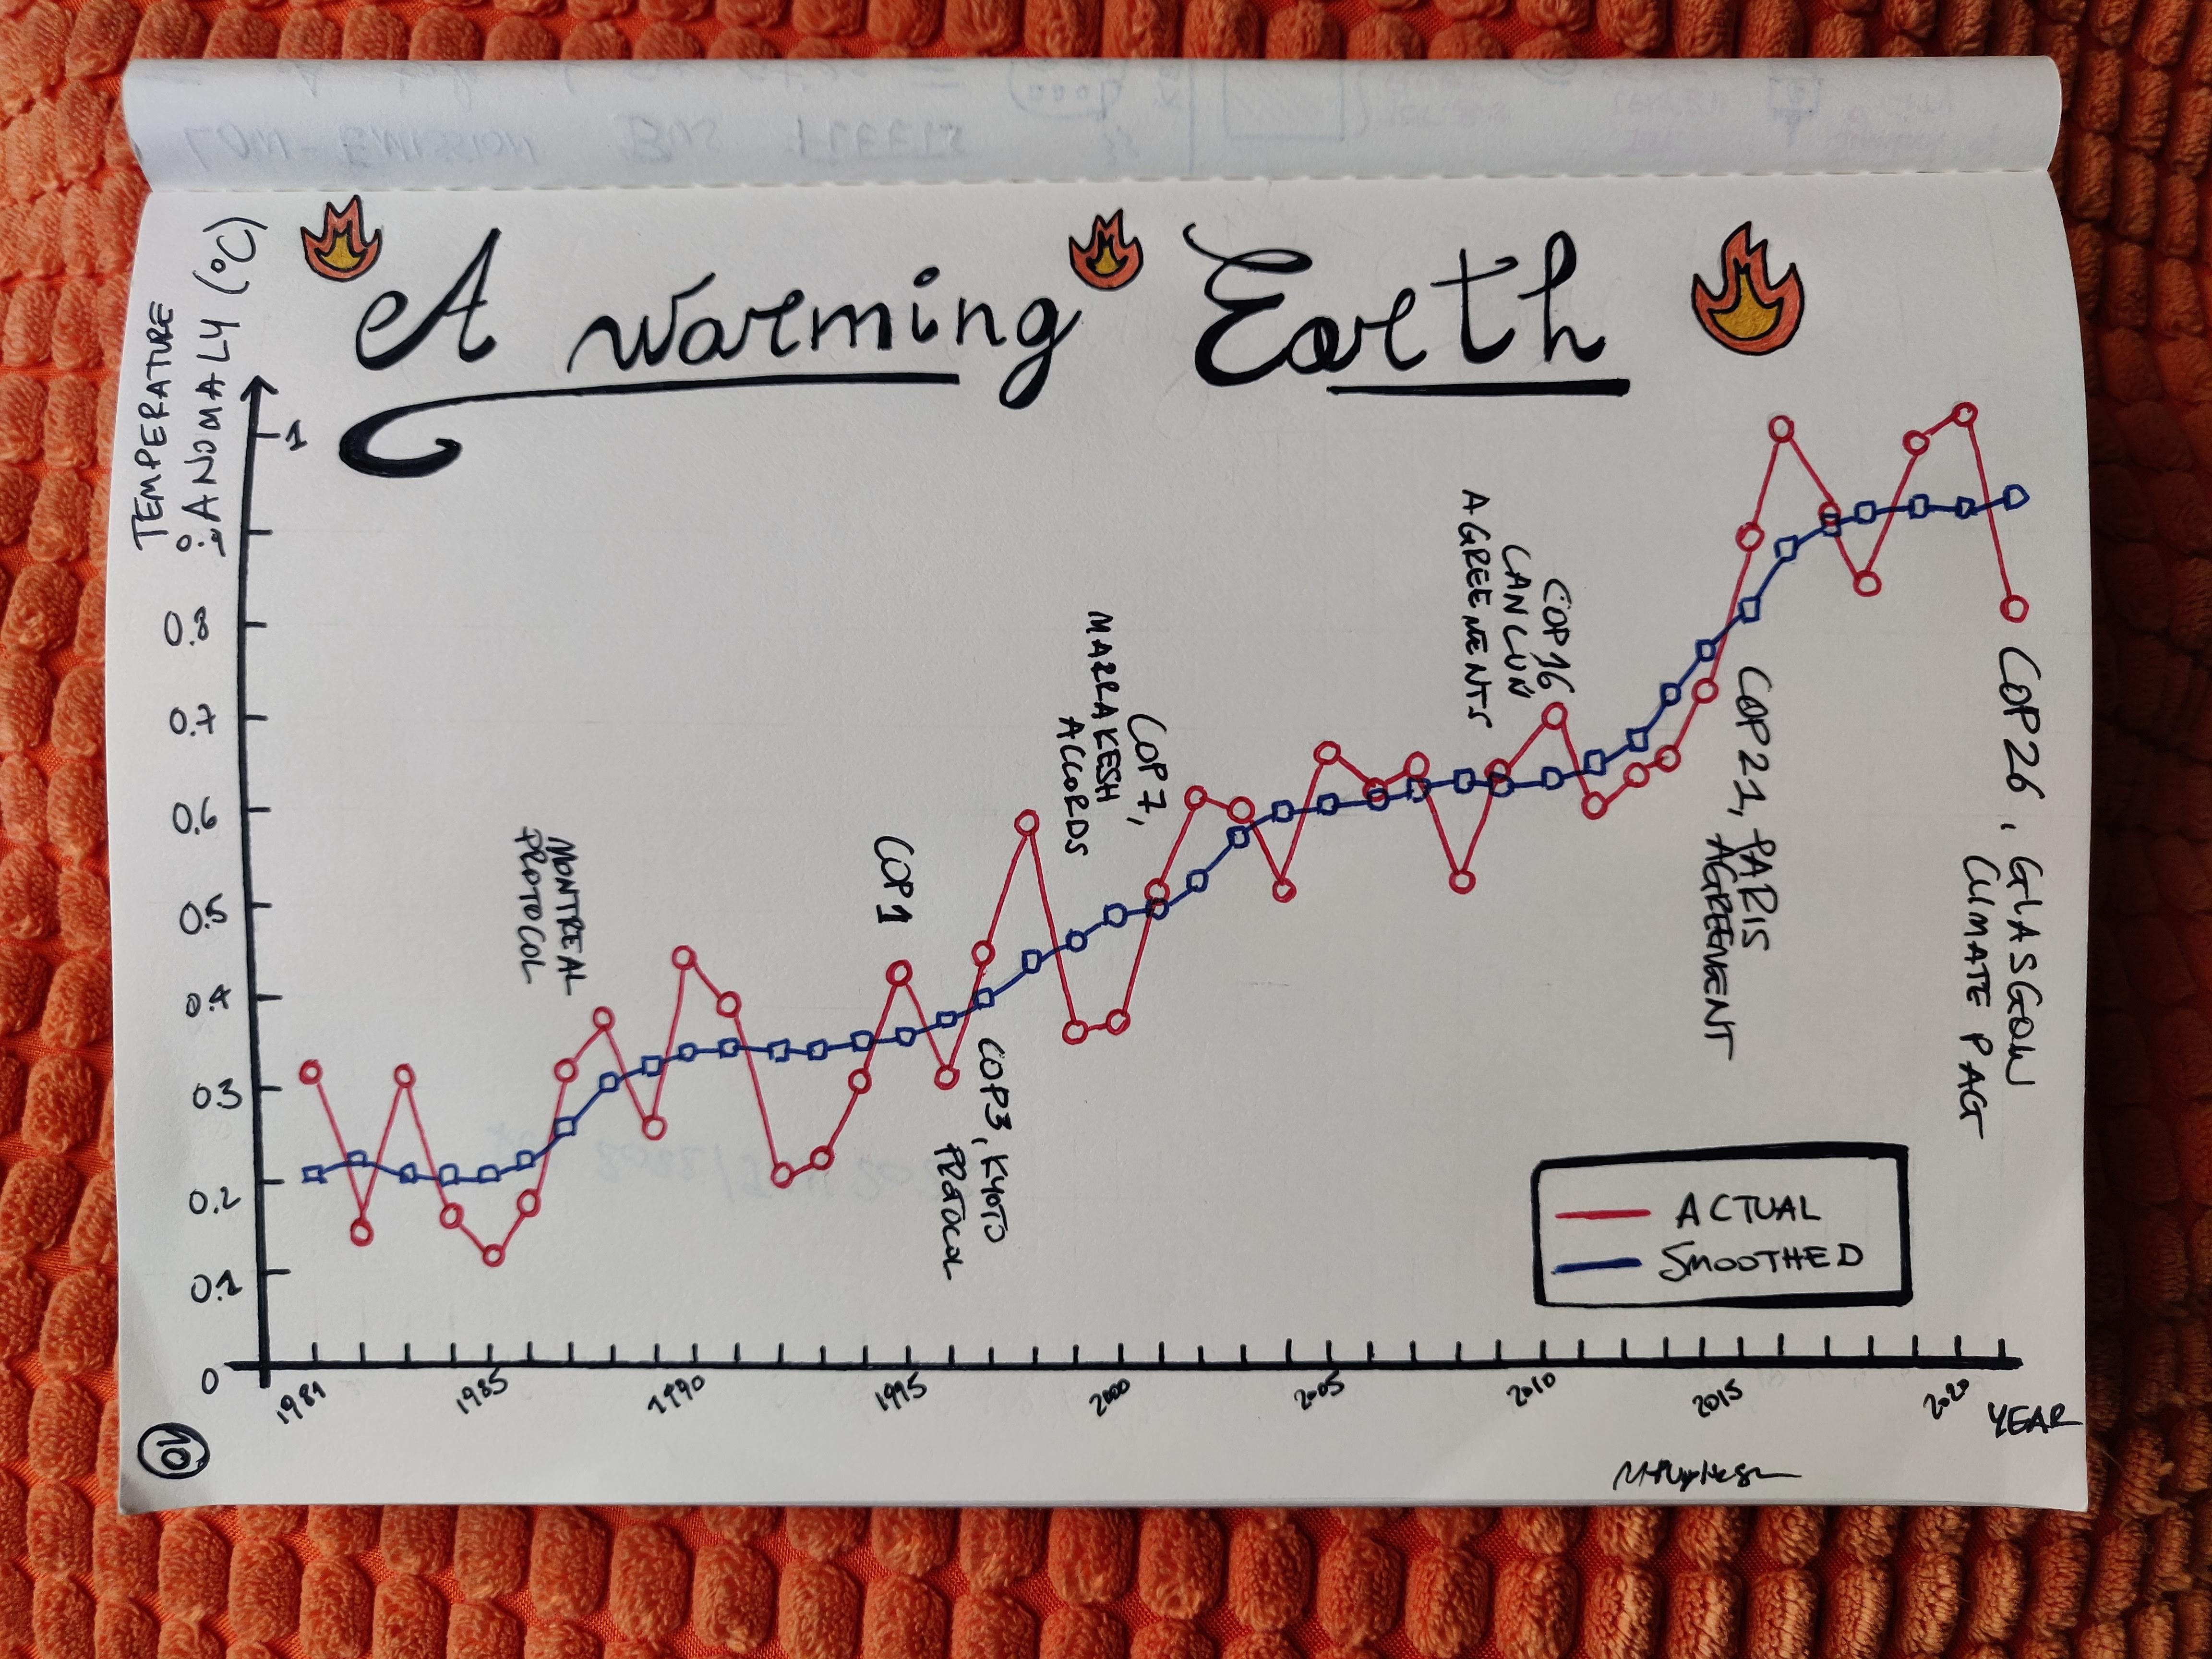 A warming Earth
TEMPERATURE
ANOMALY (°C)
1
0.
0.8
0.7
0.6
0.5
0.4
0.3
0.2
0.1
0
MONTREAL
PROTOCOL
COP1
COP3, KYOTO
PROTOCOL
COP7,
MARRAKESH
ACCORDS
COP16
CANCUÑ
AGREEMENTS
COP21, PARIS
AGREEMENT
COP26, GLASGOW
CLIMATE PAG
ACTUAL
SMOOTHED
1981
1985
1990
1995
2000
2005
2010
2015
2020
YEAR
10